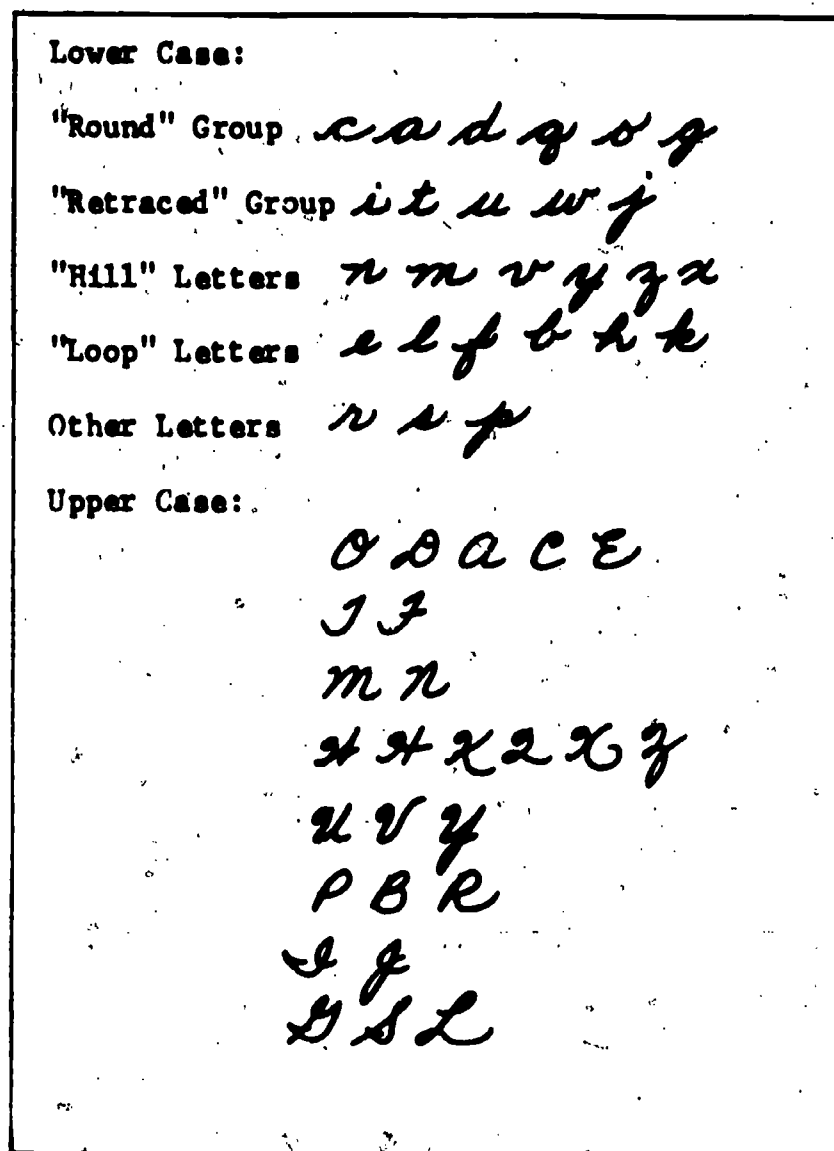 Lower Case:
"Round" Group c a d q o g
"Retraced" Group i t u w j
"Hill" Letters n m v y z x
"Loop" Letters e l f b h k
Other Letters r s p
Upper Case:
O D A C E
T F
M N
H H K Q X Z
U V Y
P B R
I J
G S L